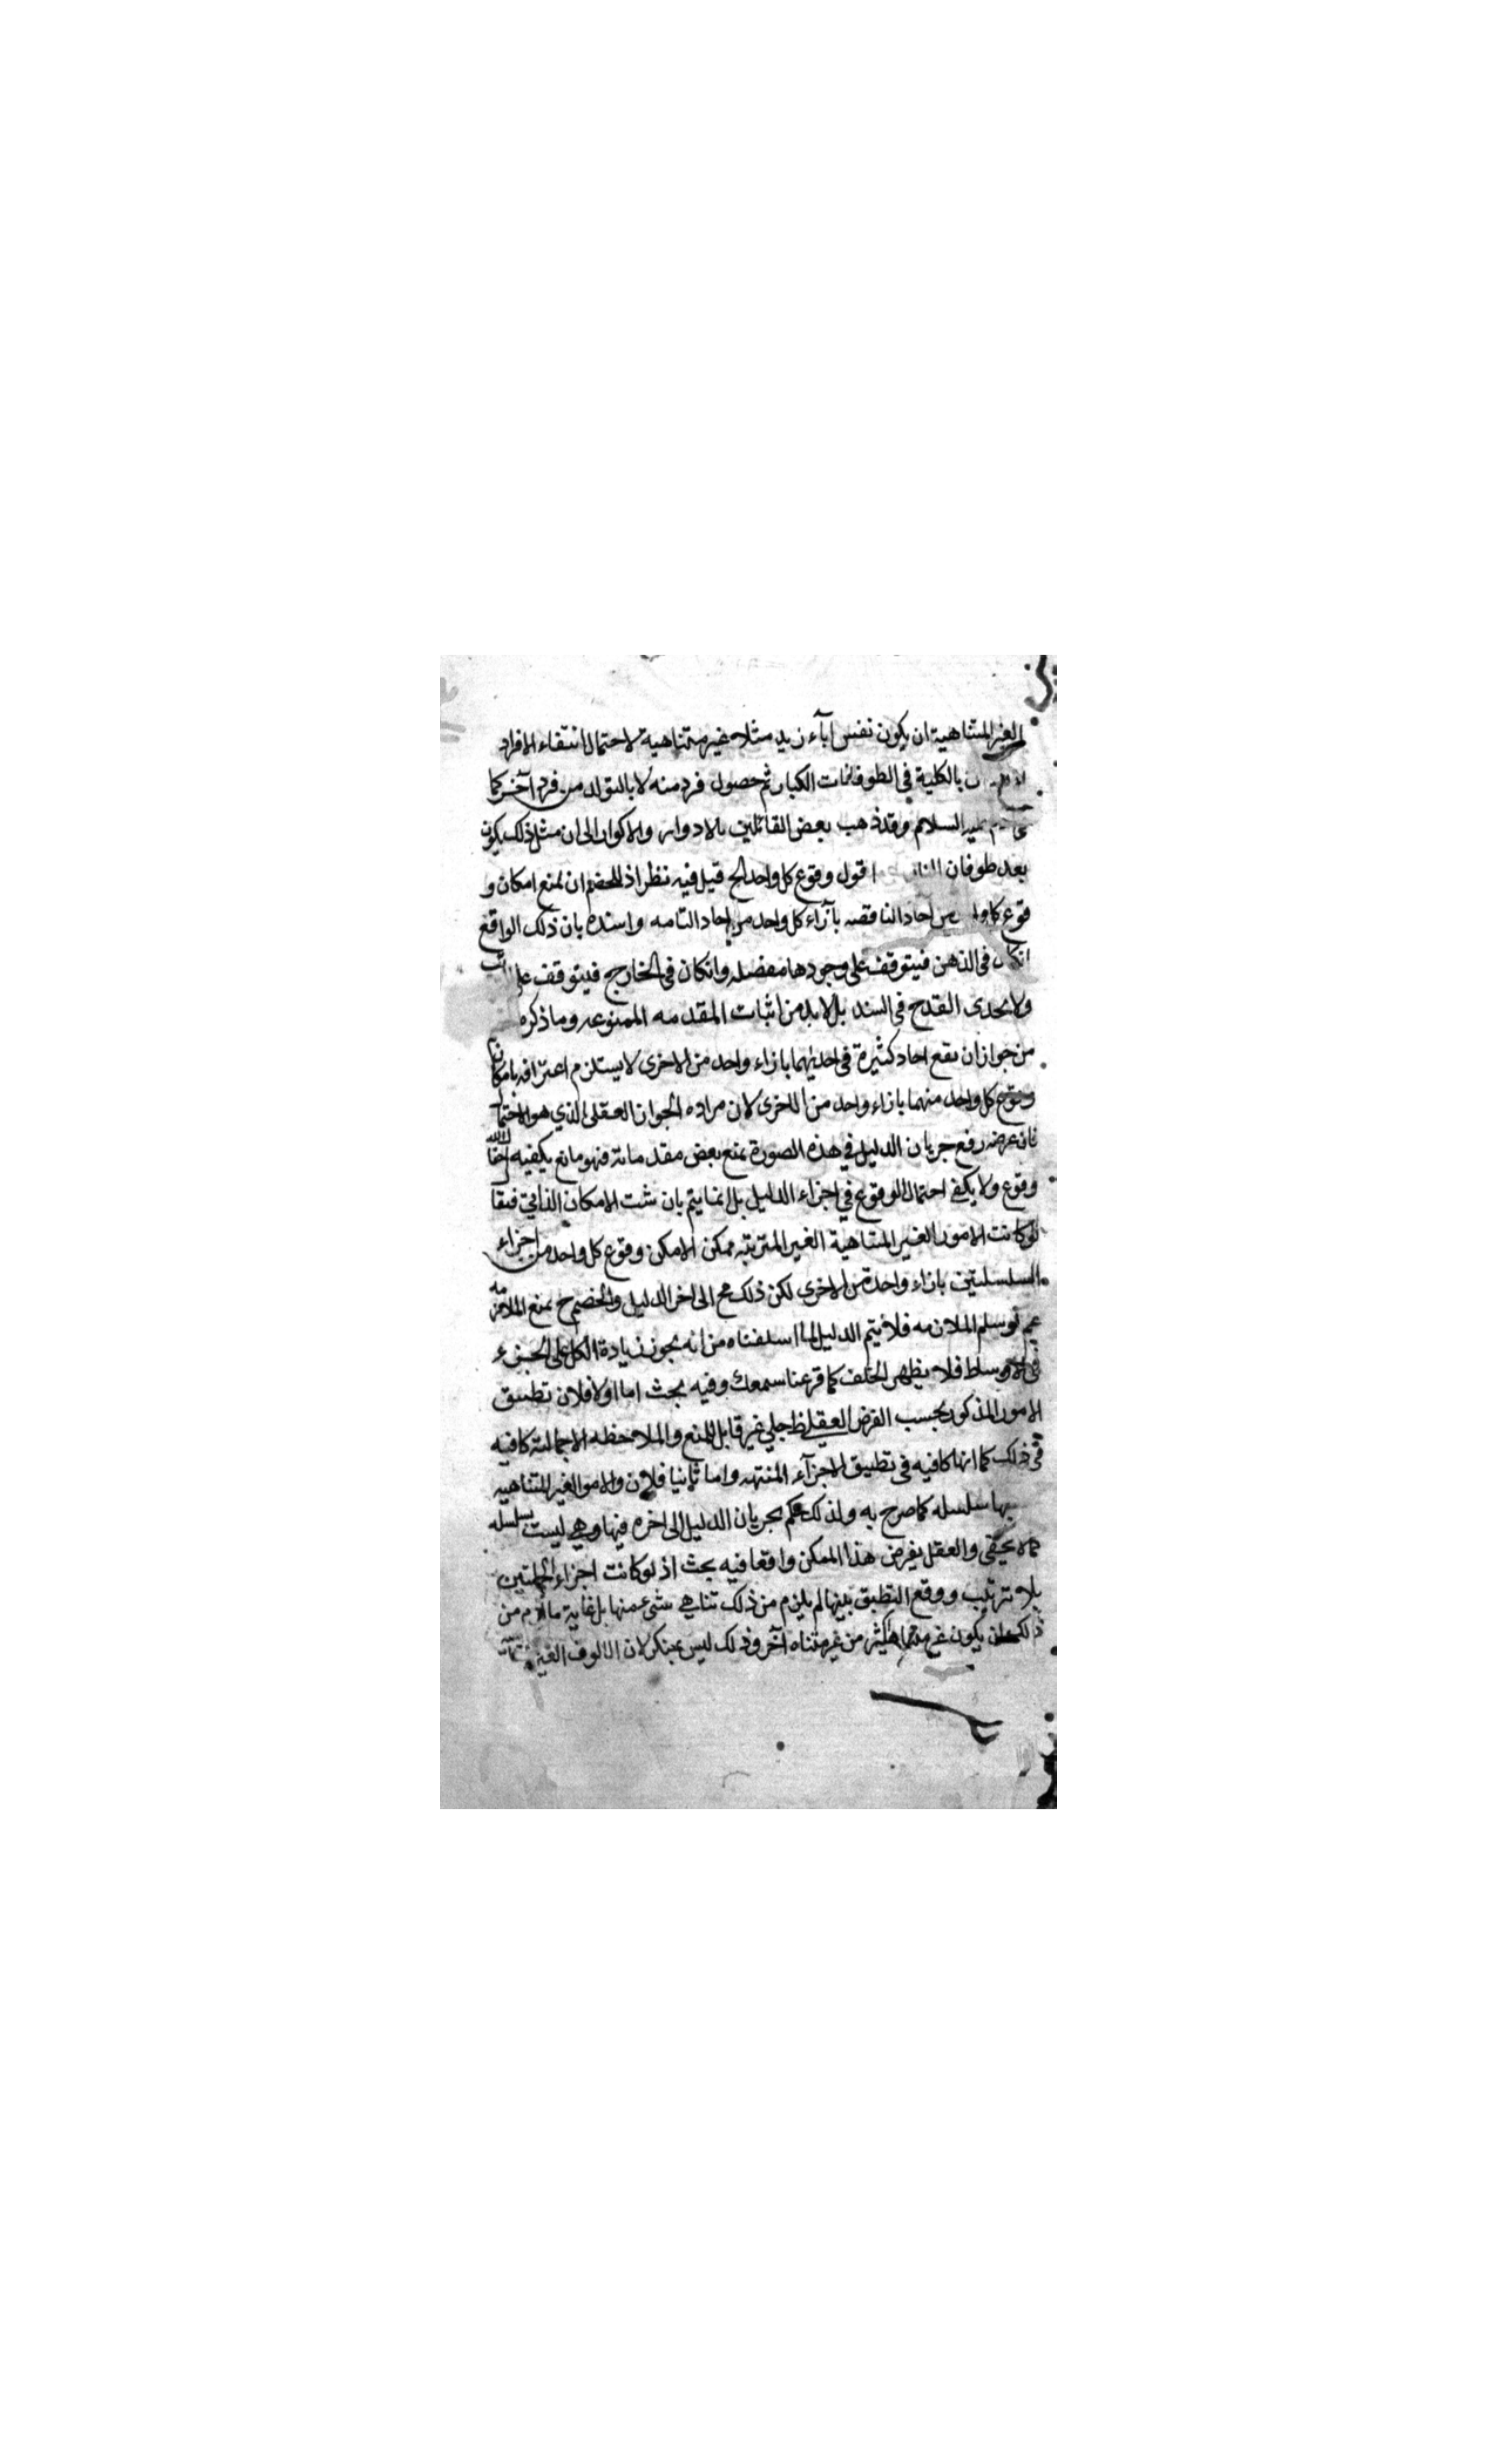 الغير المتناهية ان يكون نفس اباء زيد مثلا غير متناهية لاحتمال انتفاء الافراد
بالكلية في الطوفانات الكبار ثم حصول فرد منه لا بالتولد من فرد آخر كما
السلام وقد ذهب بعض القائلين بالادوار والاكوار الى ان مثل ذلك يكون
بعد طوفان اقول وقوع كل واحد الخ قيل فيه نظر اذ للخصم ان يمنع امكان و
قوع من احاد الناقصه بآزاء كل واحد من احاد التامه واسنده بان ذلك الواقع
انكان في الذهن فيتوقف على وجودها مفصله وانكان في الخارج فيتوقف على
ولا يجدى القدح في السند بل لابد من اثبات المقدمه الممنوعه وما ذكره
من جواز ان يقع احاد كثيرة في احديهما بازاء واحد من الاخرى لا يستلزم اعترافه بامكان
وقوع كل واحد منهما بازاء واحد من الاخرى لان مراده الجواز العقلى الذي هو الاحتمال
فان غرضه رفع جريان الدليل في هذه الصورة بمنع بعض مقدماته فهو مانع يكفيه احتمال
وقوع ولا يكفي احتمال الوقوع في اجزاء الدليل بل انما يتم بان يثبت الامكان الذاتي فيقا
لو كانت الامور الغير المتناهية الغير المترتبه ممكن لامكن وقوع كل واحد من اجزاء
السلسلتين بازاء واحدة من الاخرى لكن ذلك مح الى اخر الدليل والخصم ح يمنع الملازمه
لو سلم الملازمه فلا يتم الدليل لما اسلفناه من انه يجوز زيادة الكل على الجزء
في الاوساط فلا يظهر الخلف كما قرعنا سمعك وفيه بحث اما اولا فلان تطبيق
الامور المذكور بحسب الفرض العقلي جلي غير قابل للمنع والملاحظه الاجمالية كافيه
في ذلك كما انها كافيه في تطبيق الاجزآء واما ثانيا فلان الامور الغير المتناهيه
سلسله كما صرح به ولذلك حكم بجريان الدليل الى اخره فيها وهي ليست بسلسله
كما لا يخفى والعقل يفرض هذا الممكن واقعا فيه بحث اذ لو كانت اجزاء الجملتين
بلا ترتيب ووقع التطبيق بينها لم يلزم من ذلك تناهي شيء منها بل غاية ما لزم من
ذلك ان يكون غير متناه اكثر من غير متناه آخر وذلك ليس بمنكر لان الالوف الغير